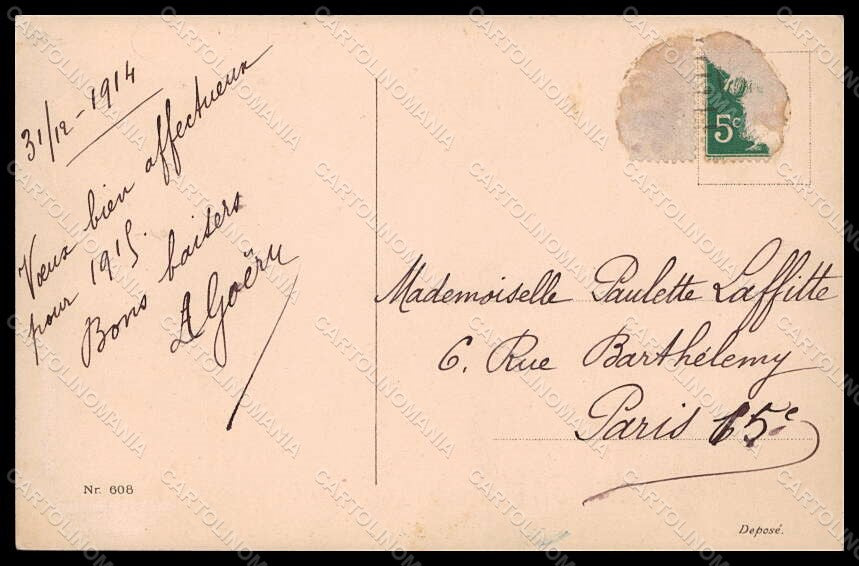 31/12 - 1914
Vœux bien affectueux
pour 1915.
Bons baisers
5c
Mademoiselle Paulette Laffitte
6. Rue Barthélemy
Paris 15e
Nr. 608
Deposé.
CARTOLINOMANIA